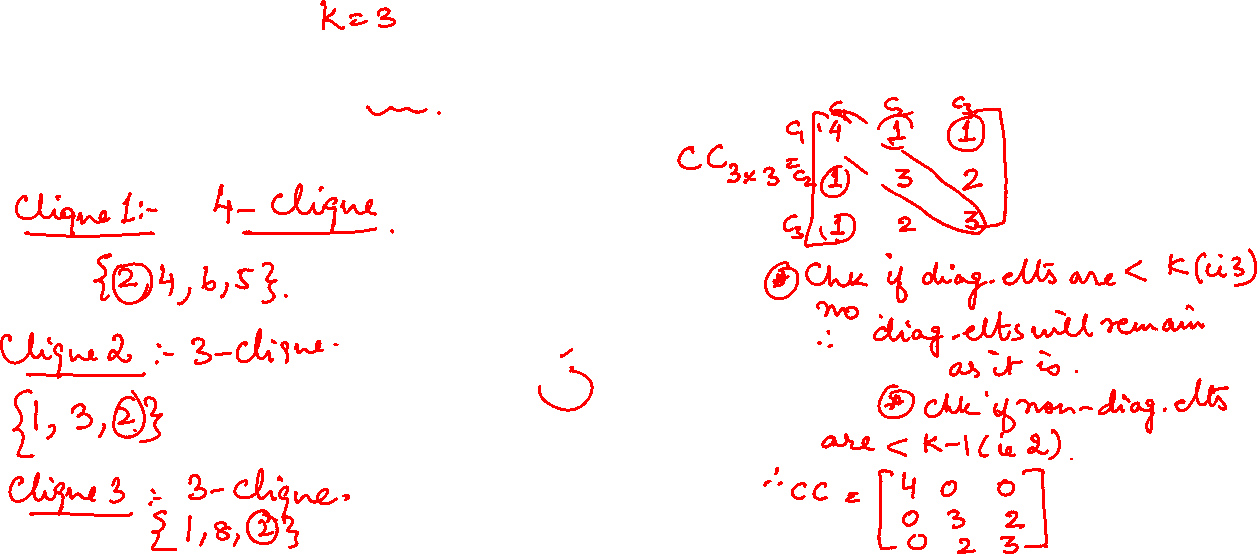 K=3
Clique 1:- 4-clique.
{2,4,6,5}.
Clique 2 :- 3-clique.
{1, 3, 2}
Clique 3 :- 3-clique.
{1,8,2}
C1 C2 C3
C1 4 1 1
CC3x3 = C2 1 3 2
C3 1 2 3
* Chk if diag. elts are < K (ie 3)
no
∴ diag. elts will remain
as it is.
* chk if non-diag. elts
are < K-1 (ie 2).
∴ CC = [4 0 0
0 3 2
0 2 3]